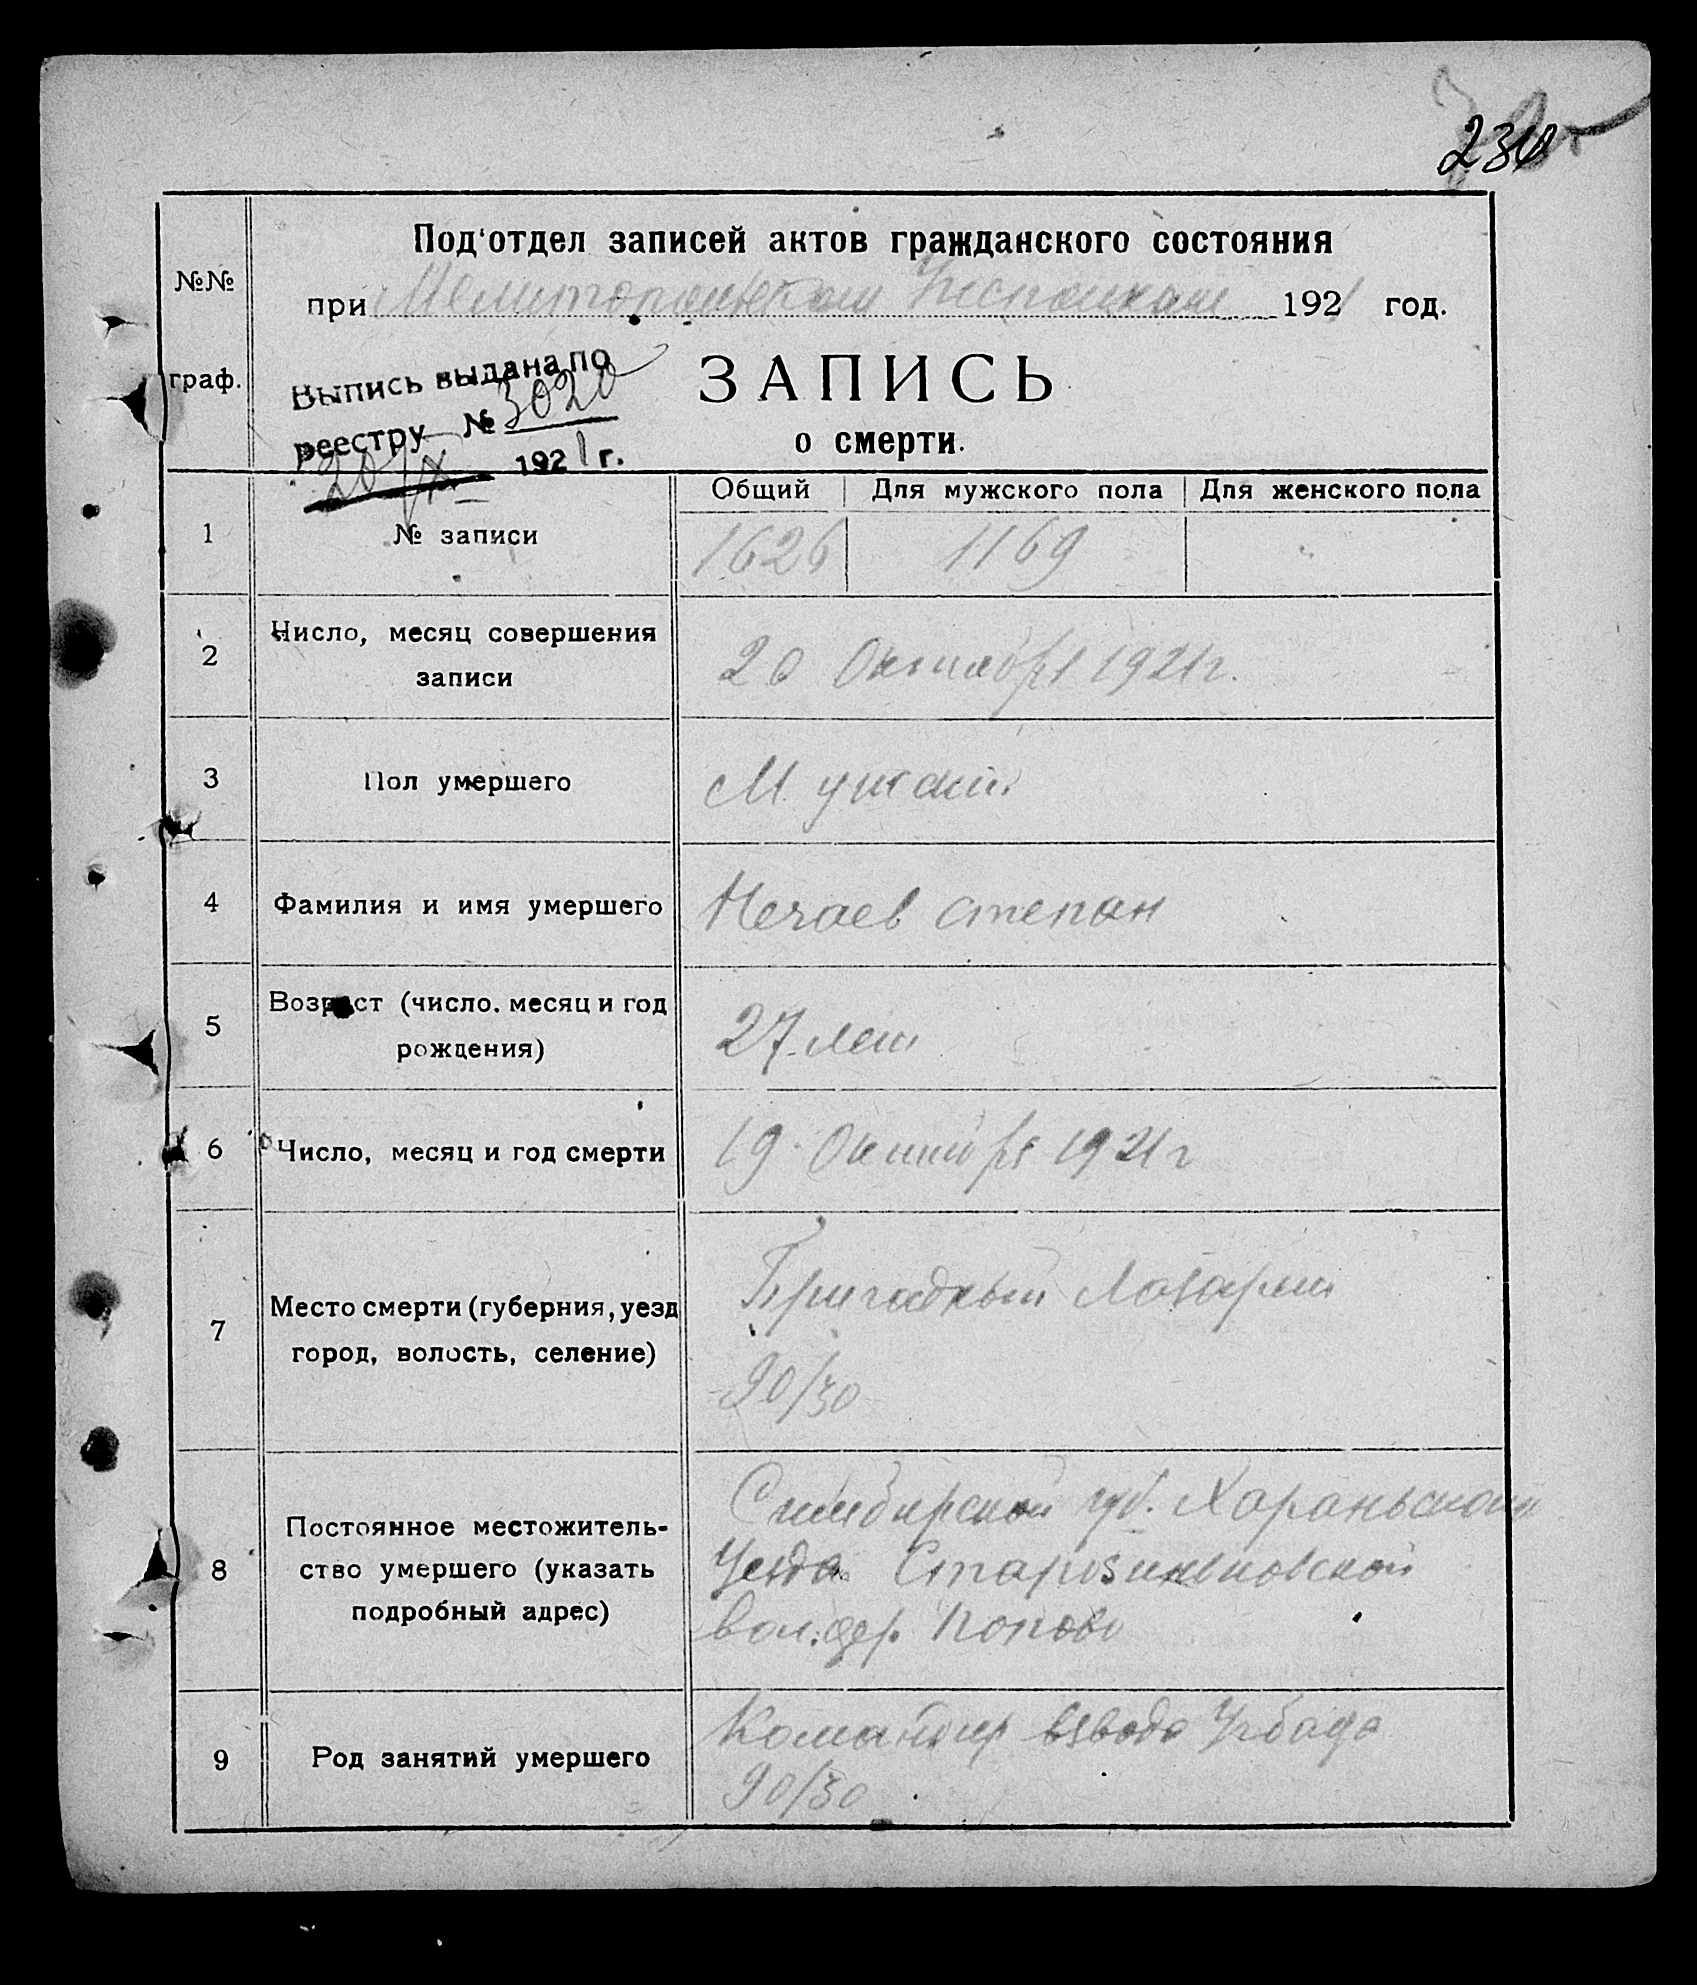 230
Под'отдел записей актов гражданского состояния
№№
при Мелитопольском Исполкоме 1921 год.
граф.
Выпись выдана по
реестру № 3020
20/IX 1921 г.
ЗАПИСЬ
о смерти.
Общий Для мужского пола Для женского пола
1 № записи 1626 1169
2 Число, месяц совершения
записи
20 Октября 1921 г.
3 Пол умершего Мужской
4 Фамилия и имя умершего Нечаев Степан
5 Возраст (число, месяц и год
рождения)
27 лет
6 Число, месяц и год смерти 19 Октября 1921 г
7 Место смерти (губерния, уезд
город, волость, селение)
Бригадный Лазарет
90/30
8 Постоянное местожитель-
ство умершего (указать
подробный адрес)
Симбирской губ.
Уезда
вол. дер. Попово
9 Род занятий умершего
Командир взвода
90/30